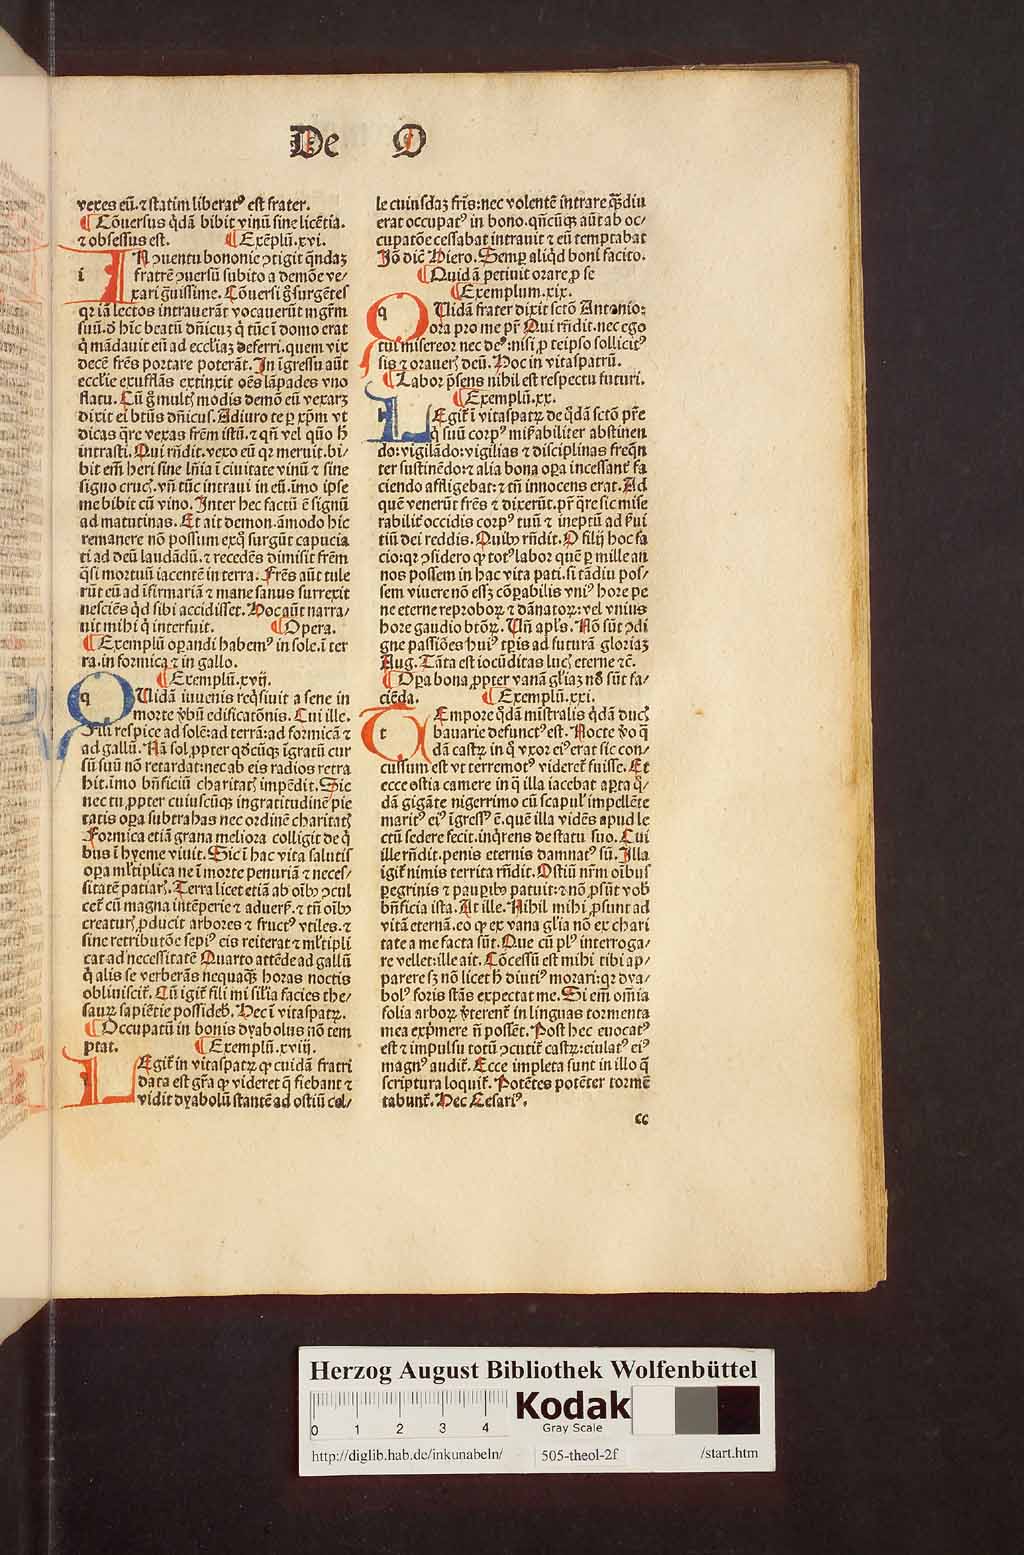 De O
vexes eū. ⁊ statim liberatꝰ est frater.
¶ Cōuersus q̇dā bibit vinū sine licētia.
⁊ obsessus est. ¶ Exēplū.xvi.
i IN ↄuentu bononie ↄtigit q̄ndaȝ
fratrē ↄuersū subito a demōe ve/
xari g̈uissime. Cōuersi g̊ surgētes
qꝛ iā lectos intrauerāt vocauerūt mgr̄m
suū. ð hic beatū dn̄icuȝ q̇ tūc ī domo erat
q̇ mādauit eū ad eccl̄iaȝ deferri. quem vix
decē fr̄es portare poterāt. In īgressu aūt
eccl̄ie exufflās extinxit oēs lāpades vno
flatu. Cū g̊ multꝭ modis demō eū vexaꝛȝ
dixit ei btūs dn̄icus. Adiuro te ꝑ xp̄m vt
dicas q̄re vexas fr̄em istū. ⁊ qn̄ vel quō h̄
intrasti. Qui rn̄dit. vexo eū qꝛ meruit. bi/
bit em̄ heri sine ln̄ia ī ciuitate vinū ⁊ sine
signo crucꝭ. vn̄ tūc intraui in eū. īmo ipse
me bibit cū vino. Inter hec factū ē signū
ad matutinas. Et ait demon. āmodo hic
remanere nō possum exq̇ surgūt capucia
ti ad deū laudādū. ⁊ recedēs dimisit frēm
q̄si mortuū iacentē in terra. Fr̄es aūt tule
rūt eū ad īfirmariā ⁊ mane sanus surrexit
nesciēs q̇d sibi accidisset. Hoc aūt narra/
uit mihi q̇ interfuit. ¶ Opera.
¶ Exemplū oꝑandi habemꝰ in sole. ī ter
ra. in formica ⁊ in gallo.
¶ Exemplū.xvij.
q QUidā iuuenis req̇siuit a sene in
morte v̄bū edificatōnis. Cui ille.
Fili respice ad solē: ad terrā: ad formicā ⁊
ad gallū. Nā sol ꝓpter qd̄cūqꝫ īgratū cur
sū suū nō retardat: nec ab eis radios retra
hit. īmo bn̄ficiū charitatꝭ impēdit. Sic
nec tu ꝓpter cuiuscūqꝫ ingratitudinē pie
tatis oꝑa subtrahas nec ordinē charitatꝭ
Formica etiā grana meliora colligit de q̇
bus ī hyeme viuit. Sic ī hac vita salutis
oꝑa ml̄tiplica ne ī morte penuriā ⁊ neces/
sitatē patiarꝭ. Terra licet etiā ab oībꝰ ↄcul
cet̄ cū magna intēperie ⁊ aduerſ. ⁊ tn̄ oībꝰ
creaturꝭ ꝓducit arbores ⁊ fructꝰ vtiles. ⁊
sine retributōe sepiꝰ eis reiterat ⁊ ml̄tipli
cat ad necessitatē Quarto attēde ad gallū
q̇ alis se verberās nequaq̄ȝ horas noctis
obliuiscit̄. Cū igit̄ fili mi sil̄ia facies the/
sauꝝ sapiētie possideb̄. Hec ī vitaspatꝝ.
¶ Occupatū in bonis dyabolus nō tem
ptat. ¶ Exemplū.xviij.
LEgit̄ in vitaspatꝝ ꝙ cuidā fratri
data est gr̄a ꝙ videret q̄ fiebant ⁊
vidit dyabolū stantē ad ostiū cel/
le cuiusdaȝ fr̄is: nec volentē intrare q̄ȝdiu
erat occupatꝰ in bono. qn̄cūqꝫ aūt ab oc/
cupatōe cessabat intrauit ⁊ eū temptabat
Jō dic̄ Hiero. Semꝑ aliq̇d boni facito.
¶ Quidā petiuit orare ꝓ se
¶ Exemplum.xix.
q QUidā frater dixit sctō Antonio:
ora pro me pr̄ Qui rn̄dit. nec ego
tui misereor nec deꝰ: nisi ꝓ teipso sollicitꝰ
sis ⁊ orauerꝭ deū. Hoc in vitaspatrū.
¶ Labor p̄sens nihil est respectu futuri.
¶ Exemplū.xx.
LEgit̄ ī vitaspatꝝ de q̇dā sctō pr̄e
q̇ suū corpꝰ mir̄abiliter abstinen
do: vigilādo: vigilias ⁊ disciplinas freq̄n
ter sustinēdo: ⁊ alia bona oꝑa incessant̄ fa
ciendo affligebat: ⁊ tn̄ innocens erat. Ad
quē venerūt fr̄es ⁊ dixerūt. pr̄ q̄re sic mise
rabilit̄ occidis corpꝰ tuū ⁊ ineptū ad s̄ui
tiū dei reddis. Quibꝰ rn̄dit. O filij hoc fa
cio: qꝛ ↄsidero ꝙ totꝰ labor quē ꝑ mille an
nos possem in hac vita pati. si tādiu pos/
sem viuere nō essȝ cōꝑabilis vniꝰ hore pe
ne eterne reproboꝝ ⁊ dānatoꝝ: vel vnius
hore gaudio btōꝝ. Vn̄ apl̄s. Nō sūt ↄdi
gne passiōes huiꝰ tꝑis ad futurā gloriaȝ
Aug. Tāta est iocūditas lucꝭ eterne ⁊c̄.
¶ Oꝑa bona ꝓpter vanā gl̄iaȝ nō sūt fa/
ciēda. ¶ Exemplū.xxi.
t TEmpore q̇dā mīstralis q̇dā ducꝭ
bauarie defunctꝰ est. Nocte v̄o q̄
dā castꝝ in q̊ vxor eiꝰ erat sic con/
cussum est vt terremotꝰ videret̄ fuisse. Et
ecce ostia camere in q̄ illa iacebat aꝑta q̇/
dā gigāte nigerrimo cū scapul̄ impellēte
maritꝰ eiꝰ īgressꝰ ē. quē illa vidēs apud le
ctū sedere fecit. inq̇rens de statu suo. Cui
ille rn̄dit. penis eternis damnatꝰ sū. Illa
igit̄ nimis territa rn̄dit. Ostiū nr̄m oībus
ꝑegrinis ⁊ pauꝑibꝰ patuit: ⁊ nō ꝓsūt vob̄
bn̄ficia ista. At ille. Nihil mihi ꝓsunt ad
vitā eternā. eo ꝙ ex vana gl̄ia nō ex chari
tate a me facta sūt. Que cū plꝰ interroga/
re vellet: ille ait. Cōcessū est mihi tibi ap/
parere sȝ non licet h̄ diutiꝰ morari: qꝛ dya/
bolꝰ foris stās expectat me. Si em̄ om̄ia
folia arboꝝ v̄terent̄ in linguas tormenta
mea exp̄mere n̄ possēt. Post hec euocatꝰ
est ⁊ impulsu totū ↄcutit̄ castꝝ: eiulatꝰ eiꝰ
magnꝰ audit̄. Ecce impleta sunt in illo q̄
scriptura loquit̄. Potētes potēter tormē
tabunt̄. Hec Cesariꝰ.
cc
Herzog August Bibliothek Wolfenbüttel
0 1 2 3 4
Kodak
Gray Scale
http://diglib.hab.de/inkunabeln/ 505-theol-2f /start.htm